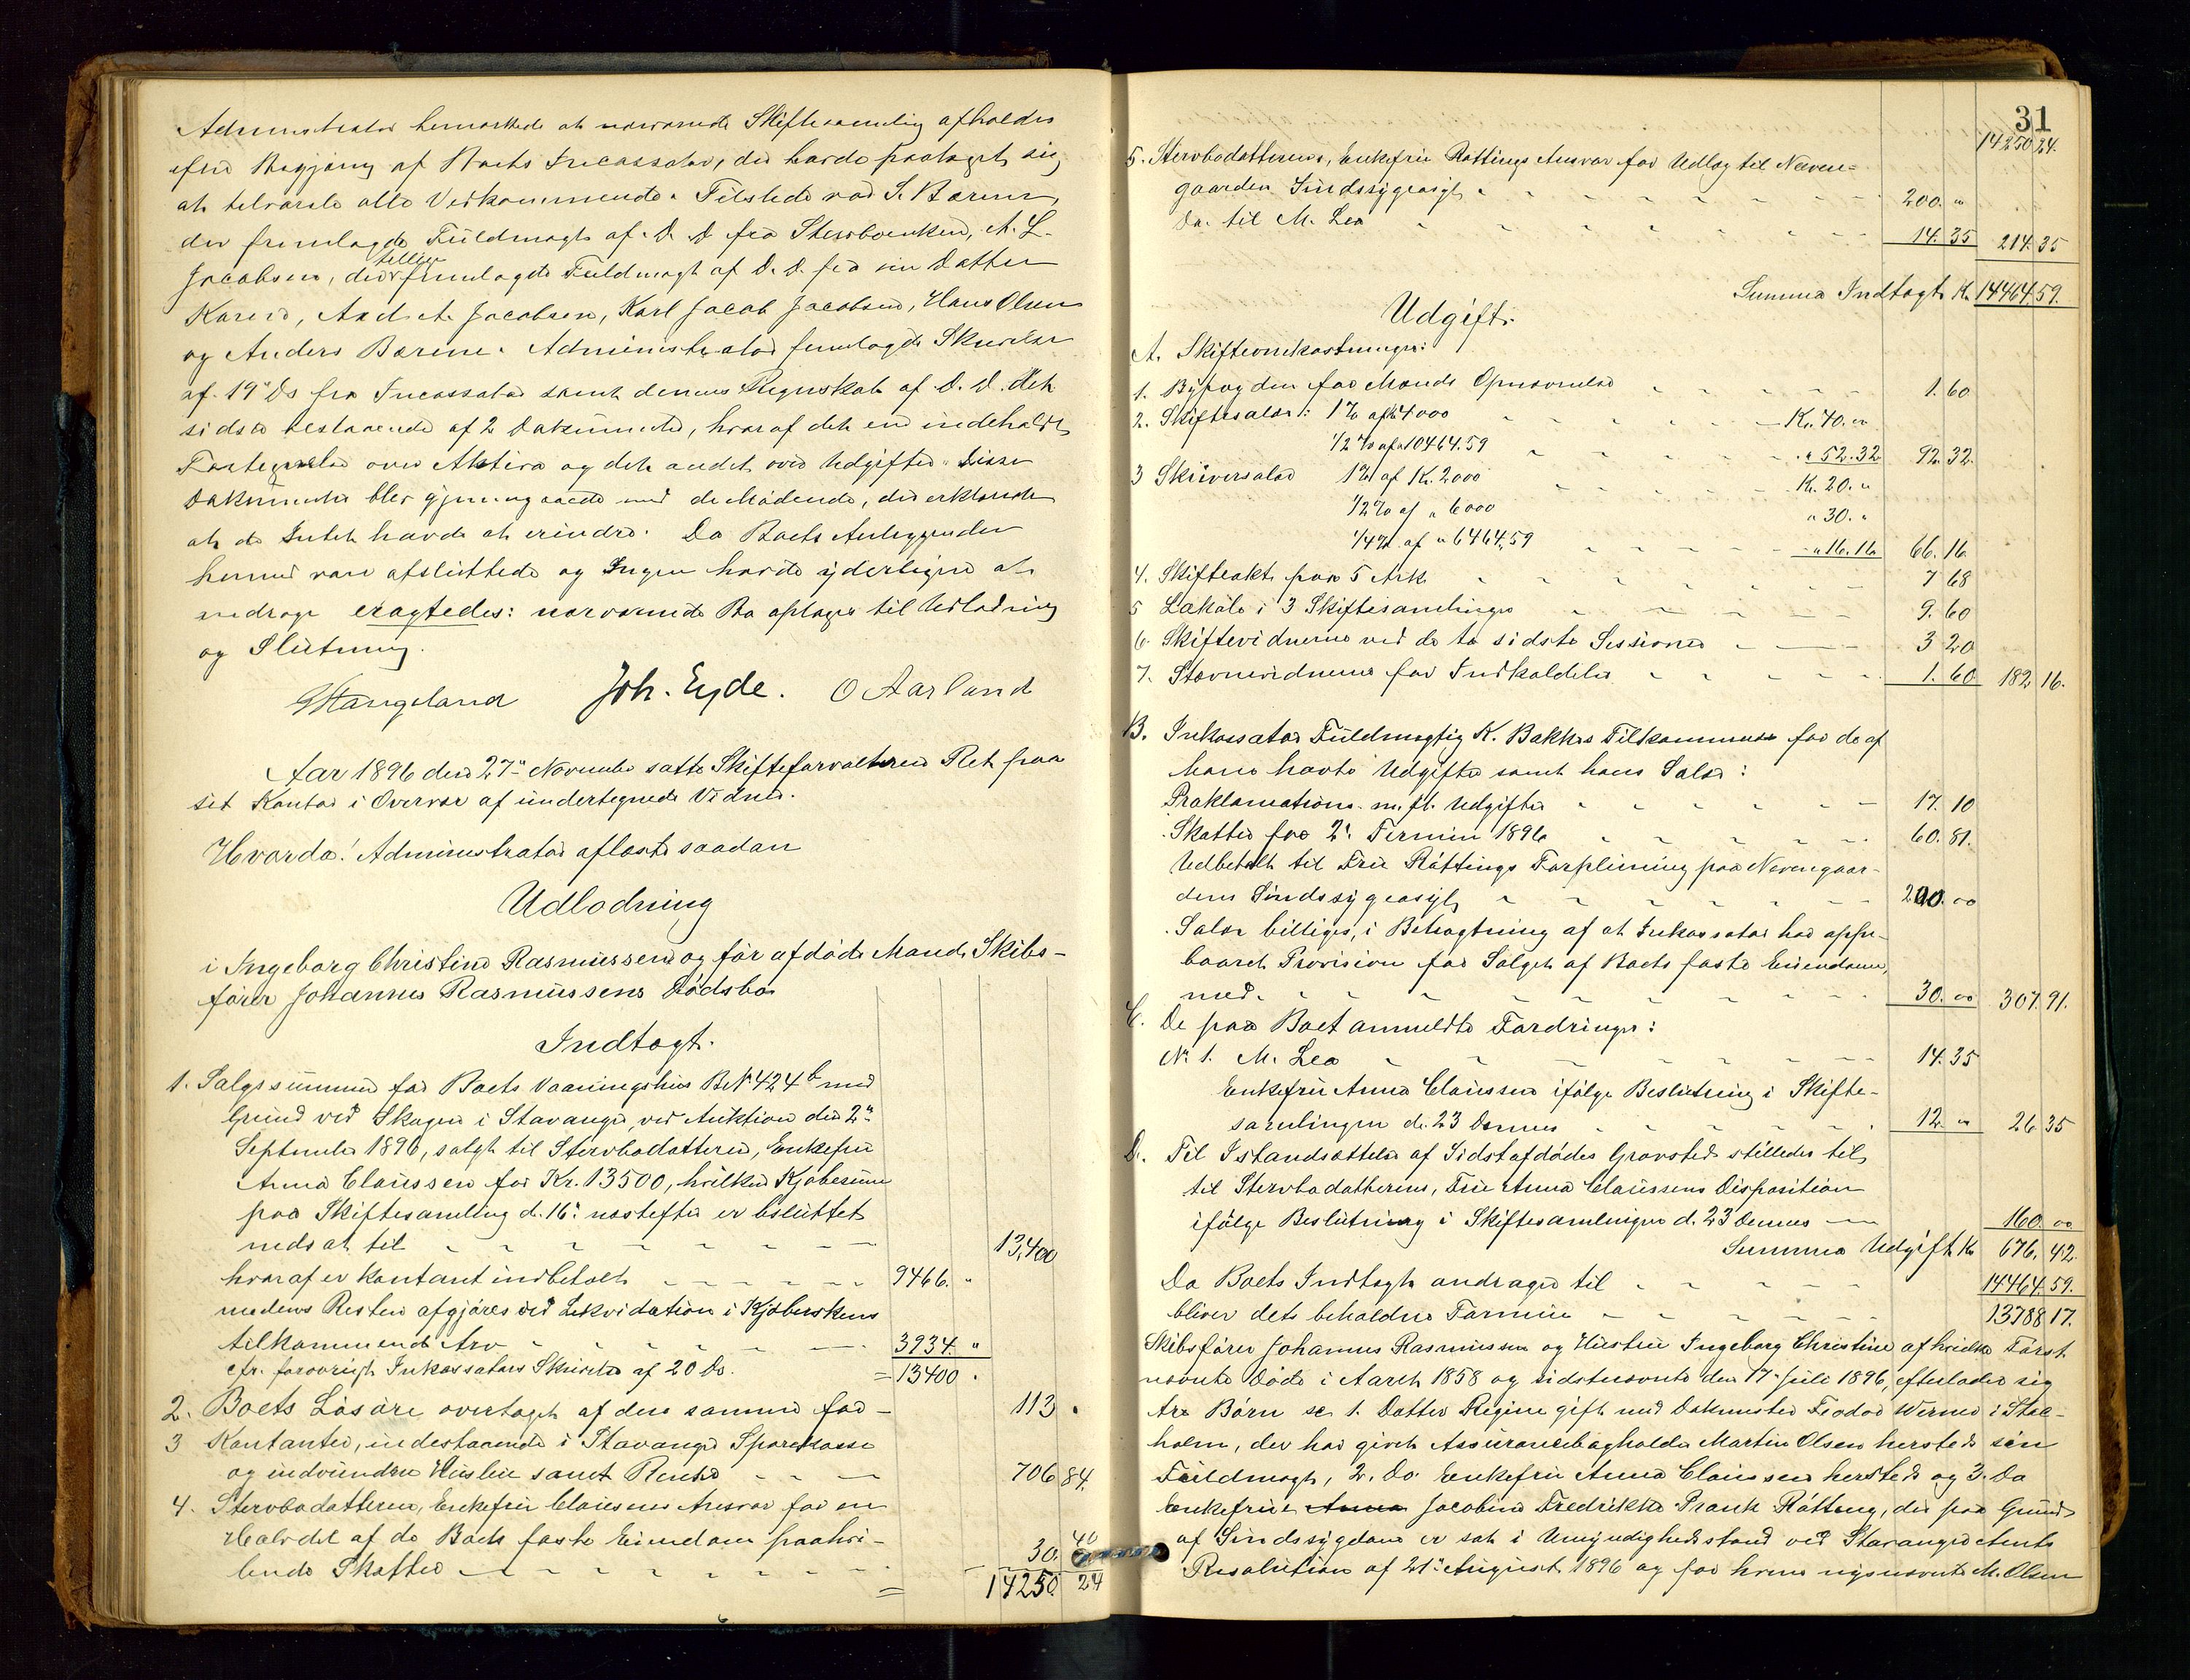 Administrator bemærkede at nærværende Skiftesamling afholdes
efter Begjæring af Boets Incassator, der havde paataget sig
at tilvarsle alle Vedkommende. Tilstede var S. Bærem,
der fremlagde Fuldmagt af D. D. fra Stervboenken, A. L.
Jacobsen, der tillige fremlagde Fuldmagt af D. D. fra sin Datter
Karen, Axel A. Jacobsen, Karl Jacob Jacobsen, Hans Olsen
og Anders Bærem. Administrator fremlagde Skrivelse
af 19de Ds fra Incassator samt dennes Regnskab af D. D. det
sidste bestaaende af 2 Dokumenter, hvoraf det ene indeholdt
Fortegnelse over Aktiva og det andet over Udgifter. Disse
Dokumenter blev gjennemgaaede med de Mødende, der erklærede
at de Intet havde at erindre. Da Boets Anliggender
hermed vare afsluttede og Ingen havde yderligere at
andrage eragtedes: nærværende Bo optages til Udlodning
og Slutning.
Hangeland Joh. Eyde. O Aarland
Aar 1896 den 27de November satte Skifteforvalteren Ret paa
sit Kontor i Overvær af undertegnede Vidner.
Hvorda! Administrator aflæste saadan
Udlodning
i Ingeborg Christine Rasmussens og før afdøde Mands Skibs-
fører Johannes Rasmussens Dødsbo
Indtægt.
1. Salgssummen for Boets Vaaningshus B.N. 424b med
Grund ved Skagen i Stavanger, ved Auktion den 2den
September 1896, solgt til Stervbodatteren, Enkefru
Anna Claussen for Kr. 13500, hvilken Kjøbesum
paa Skiftesamling d. 16de næstefter er besluttet
nedsat til 13,400
hvoraf er kontant indbetalt 9466. "
medens Resten afgjøres ved Likvidation i Kjøberskens
tilkommende Arv 3934. "
cfr. forøvrigt Inkassators Skrivelse af 20 Ds. = 13400.
2. Boets Løsøre overtaget af den samme for 113 .
3 Kontanter, indestaaende i Stavanger Sparekasse
og indvunden Husleie samt Renter 706 84.
4. Stervbodatteren, Enkefru Claussens Ansvar for en
Halvdel af de Boets faste Eiendom paahvi-
lende Skatter 30. 40
= 14250 24
31
14250 24.
5. Stervbodatterens, Enkefru Røttings Ansvar for Udlæg til Neven-
gaarden Sindssygeasyl 200. "
Do. til M. Lea 14. 35 214. 35
Summa Indtægt Kr. 14464 59.
Udgift.
A. Skifteomkostninger:
1. Byfogden for Mænds Opnævnelse 1. 60
2. Skiftesalær: 1% af 4000 Kr. 40. 00
1/2% af 10464.59 " 52. 32 92. 32.
3 Skriversalær 1% af Kr. 2000 Kr. 20. "
1/2% af " 6000 " 30. "
1/4% af " 6464,59 " 16. 16 66. 16.
4. Skifteakt paa 5 Ark 7 68
5 Lokale i 3 Skiftesamlinger 9. 60
6. Skiftevidnerne ved de to sidste Sessioner 3 20
7. Stævnevidnerne for Indkaldelse 1. 60 182 16.
B. Inkassator Fuldmægtig K. Bakkes Tilkommende for de af
ham havte Udgifter samt hans Salær:
Proklamations- m. fl. Udgifter 17. 10
Skatter for 2. Termin 1896 60. 81.
Udbetalt til Fru Røttings Forpleining paa Nevengaar-
dens Sindssygeasyl 200. 00
Salær billiges, i Betragtning af at Inkassator har oppe-
baaret Provision for Salget af Boets faste Eiendom,
med 30. 00 307. 91.
C. De paa Boet anmeldte Fordringer:
No 1. M. Lea 14. 35
Enkefru Anna Claussen ifølge Beslutning i Skifte-
samlingen d. 23 Dennes 12. " 26 35
D. Til Istandsættelse af Sidstafdødes Gravsted stilledes til
til Stervbodatterens, Fru Anna Claussens Disposition
ifølge Beslutning i Skiftesamlingen d. 23 Dennes 160. 00
Summa Udgift Kr 676. 42.
Da Boets Indtægt andrager til 14464 59.
bliver dets beholdne Formue 13788 17.
Skibsfører Johannes Rasmussen og Hustru Ingeborg Christine af hvilke Først-
nævnte døde i Aaret 1858 og sidstnævnte den 17. Juli 1896, efterlader sig
tre Børn sc 1. Datter Regine gift med Feodor Werner i Stoc-
holm, der har givet Assurancebogholder Martin Olsen hersteds sin
Fuldmagt, 2. Do. Enkefru Anna Claussen hersteds og 3. Do
Enkefrue Anna Jacobine Fredrikke Prank Røtting, der paa Grund
af Sindssygdom er sat i Umyndighedsstand ved Stavanger Amts
Resolution af 21de August 1896 og for hvem nysnævnte M. Olsen